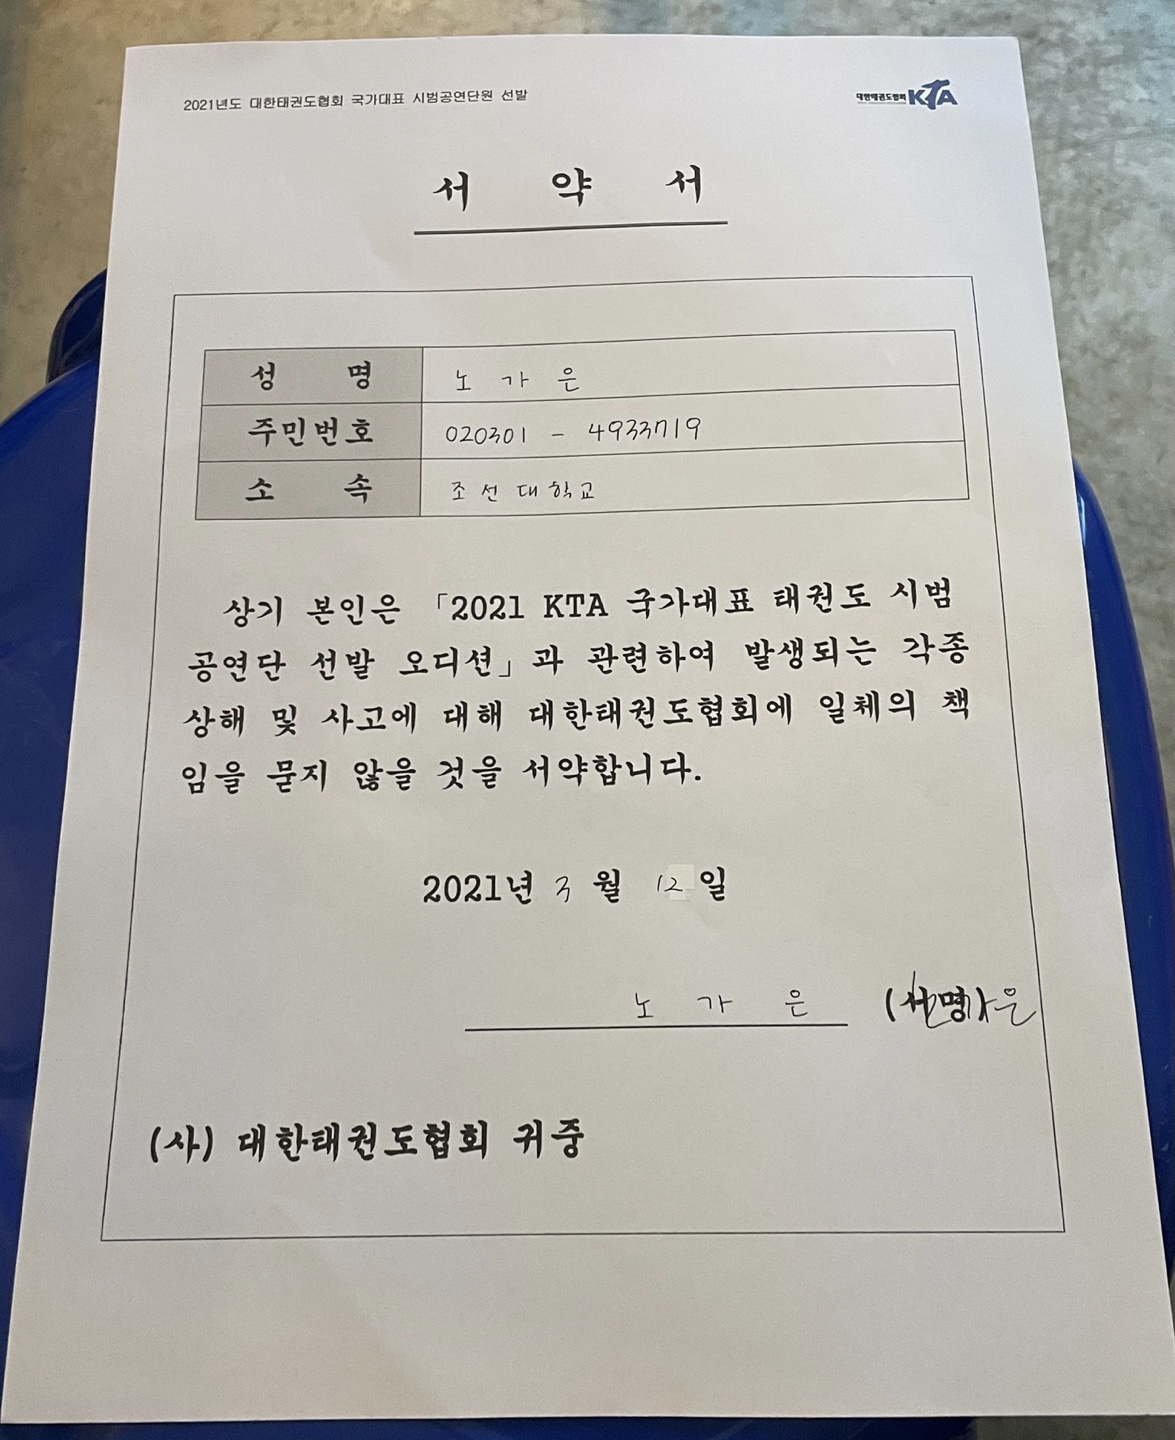 2021년도 대한태권도협회 국가대표 시범공연단원 선발
대한태권도협회 KTA
서 약 서
성 명 노 가 은
주민번호 020301 - 4933719
소 속 조선대학교
상기 본인은 「2021 KTA 국가대표 태권도 시범
공연단 선발 오디션」과 관련하여 발생되는 각종
상해 및 사고에 대해 대한태권도협회에 일체의 책
임을 묻지 않을 것을 서약합니다.
2021년 3 월 12 일
노 가 은 (서명) 노가은
(사) 대한태권도협회 귀중